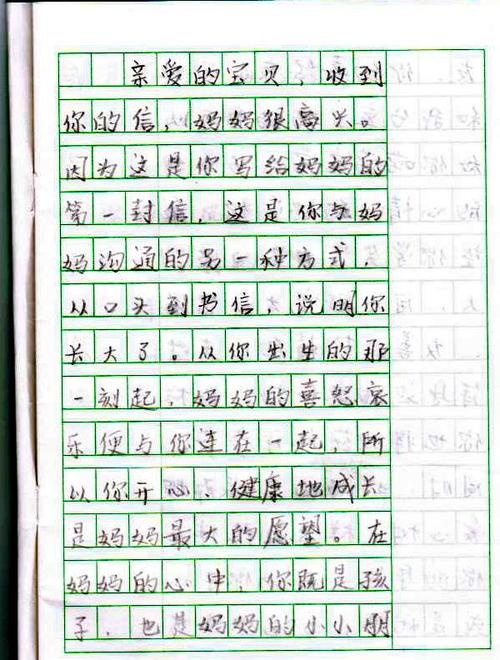 亲爱的宝贝，收到
你的信，妈妈很高兴。
因为这是你写给妈妈的
第一封信，这是你与妈
妈沟通的另一种方式，
从口头到书信，说明你
长大了。从你出生的那
一刻起，妈妈的喜怒哀
乐便与你连在一起，所
以你开心、健康地成长
是妈妈最大的愿望。在
妈妈的心中，你既是孩
子，也是妈妈的小小朋